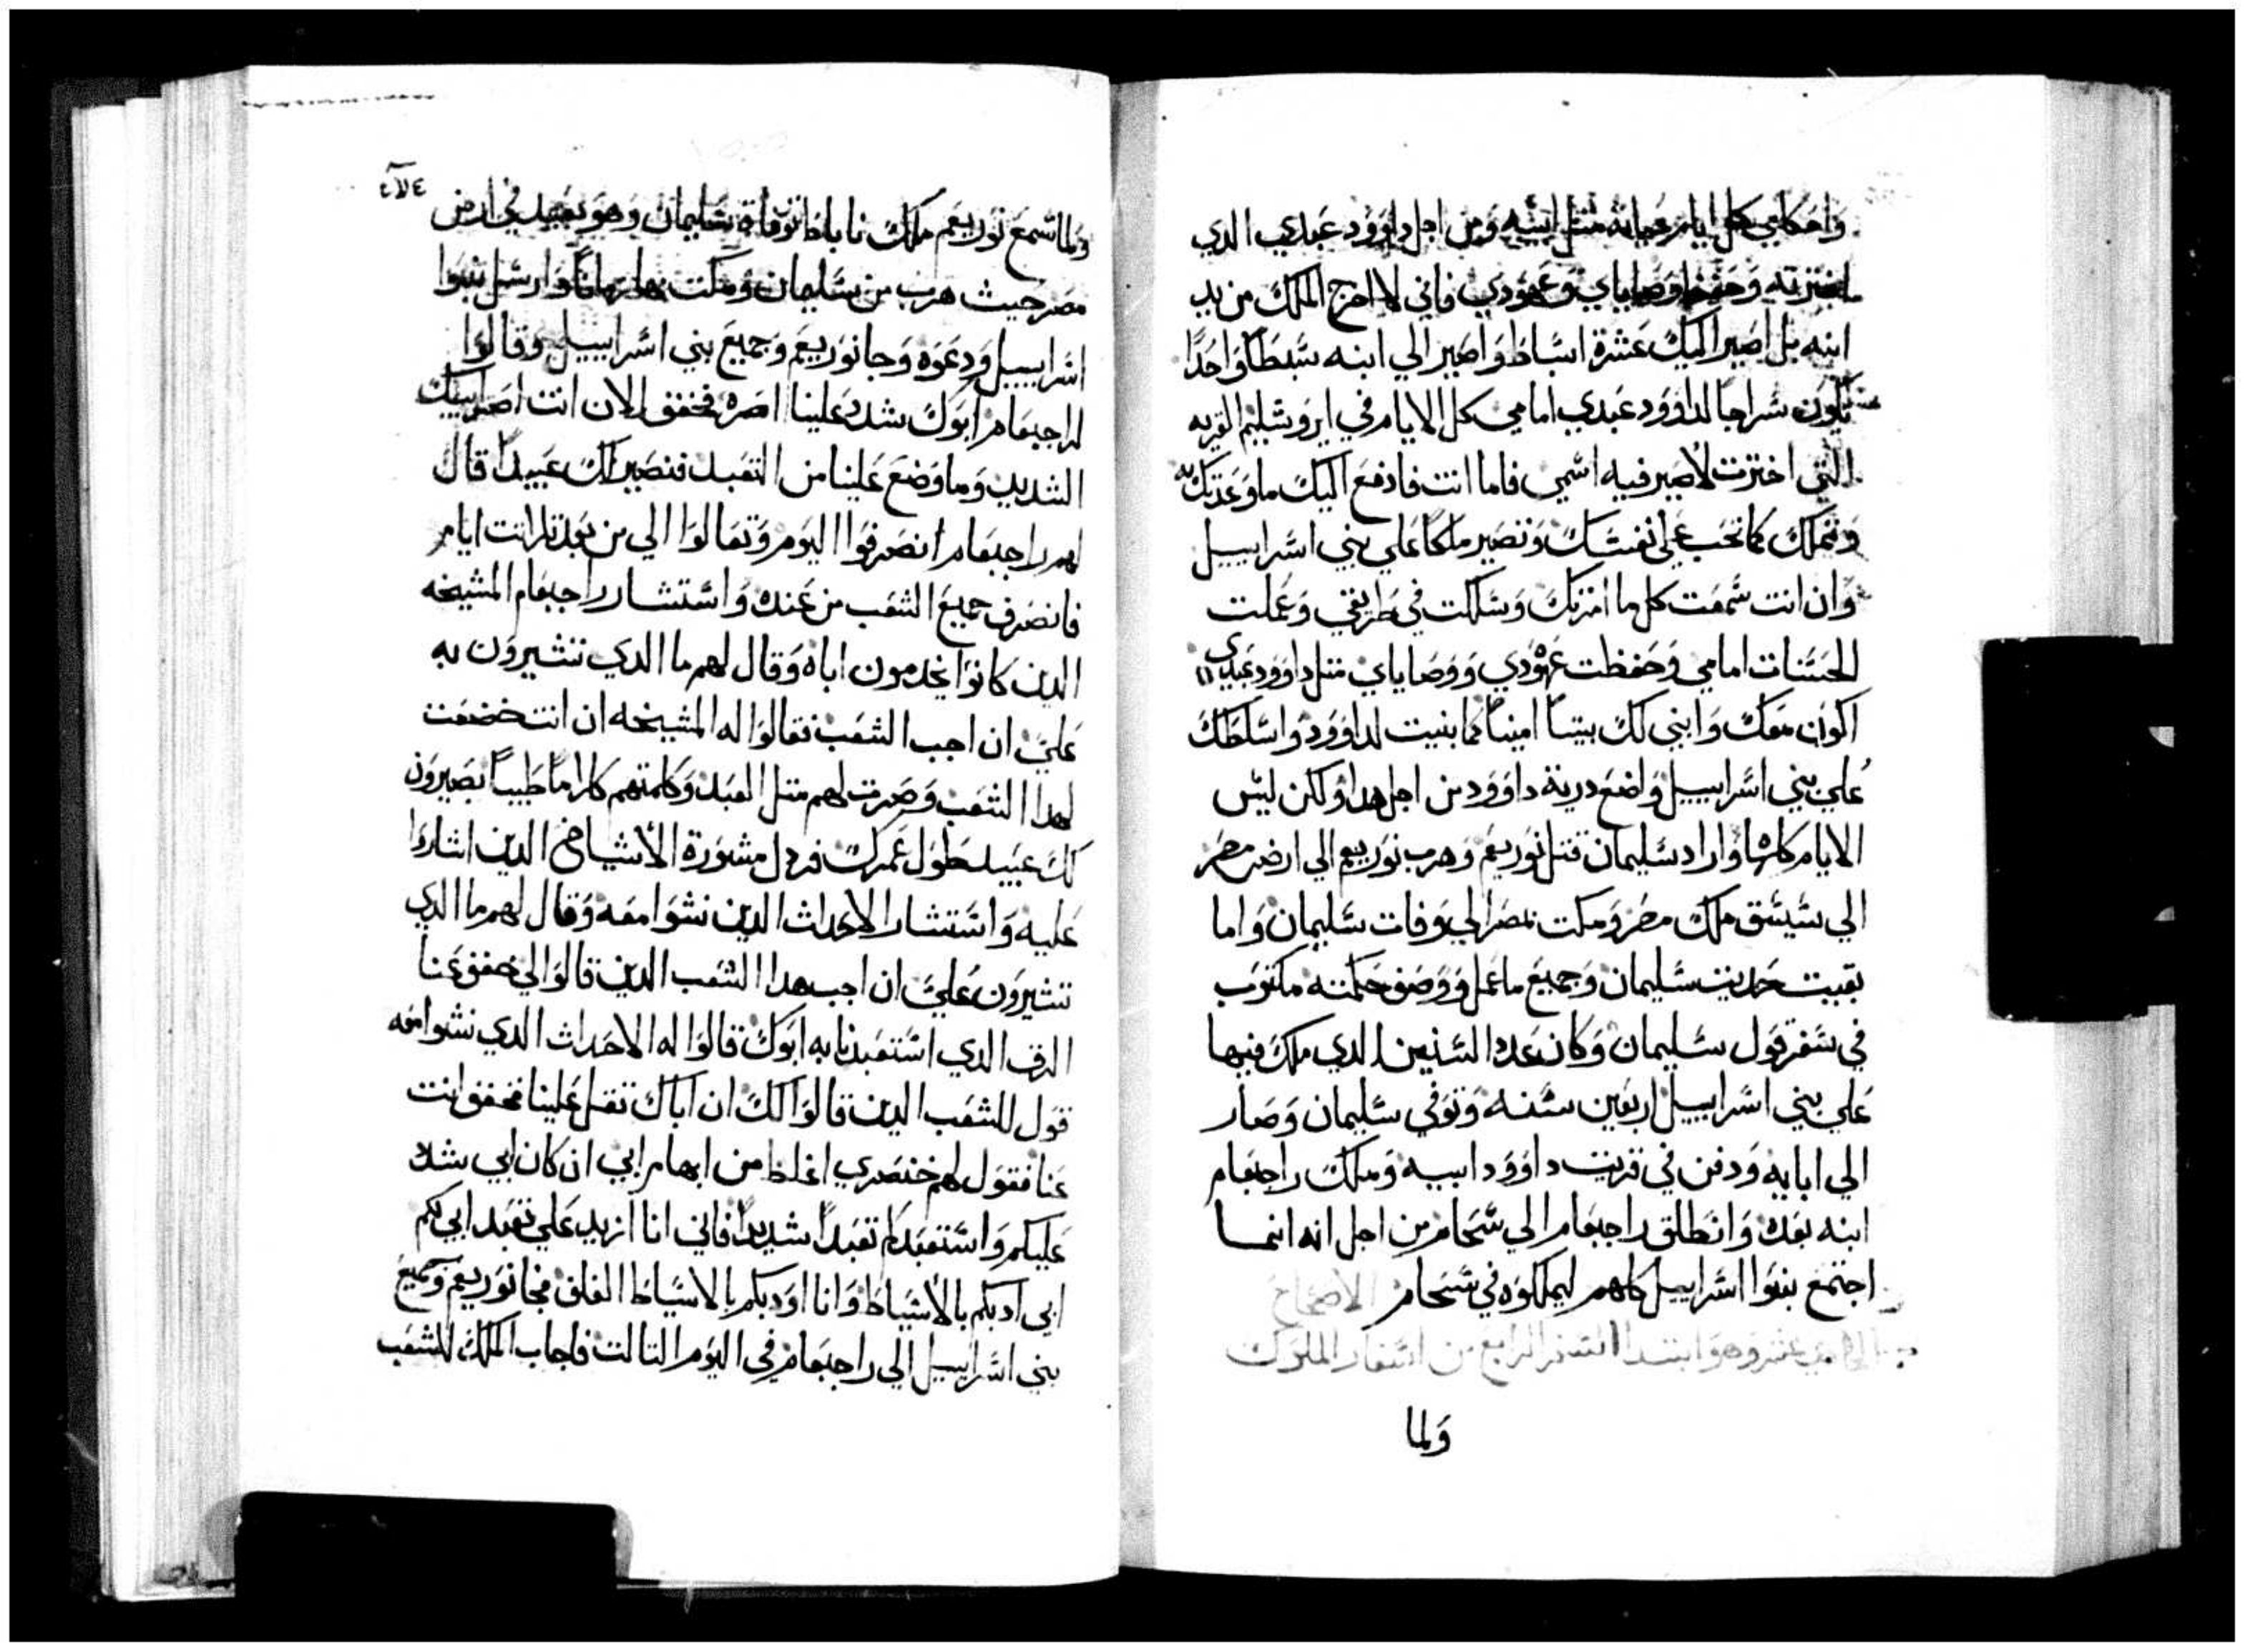 واحكامي كل ايام حياته مثل ابيه ومن اجل داوود عبدي الدي
اخترته وحفظ وصاياي وعهودي فاني لا اخرج الملك من يد
ابنه بل اصير اليك عشرة اسباط واصير الي ابنه سبطا واحدا
يكون سراجا لداوود عبدي امامي كل الايام في ايروشليم القريه
التي اخترت لاصير فيه اسمي فاما انت فادفع اليك ما وعدتك به
وتملك كما تحب علي نفسك وتصير ملكا علي بني اسراييل
وان انت سمعت كل ما امرتك وسلكت في طريقي وعملت
الحسنات امامي وحفظت عهودي ووصاياي متل داوود عبدي
اكون معك وابني لك بيتا امينا كما بنيت لداوود واسلطك
علي بني اسراييل واضع درية داوود من اجل هدا ولكن ليس
الايام كلها واراد سليمان قتل نوربعم وهرب نوربعم الي ارض مصر
الي شيشق ملك مصر ومكت بمصر الي وفات سليمان واما
بقيت حديت سليمان وجميع ما عمل ووصف حكمته مكتوب
في سفر قول سليمان وكان عدد السنين الدي ملك فيها
علي بني اسراييل اربعين سنه وتوفي سليمان وصار
الي ابايه ودفن في قريت داوود ابيه وملك راجبعام
ابنه بعده وانطلق راجبعام الي شحام من اجل انه انما
اجتمع بنوا اسراييل كلهم ليملكوه في شحام الاصحاح
الحادي عشر وهو ابتدا السفر الرابع من اسفار الملوك
ولما
ولما سمع نوربعم ملك ناباط توفاة سليمان وهو بعيد في ارض
مصر حيث هرب من سليمان ومكت بها زمانا وارسل بنوا
اسراييل ودعوه وجا نوربعم وجميع بني اسراييل وقالوا
لراجبعام ابوك شدد علينا اصره فخفف الان انت اصر ابيك
الشديد وما وضع علينا من التعبد فنصير لك عبيدا قال
لهم راجبعام انصرفوا اليوم وتعالوا الي من بعد تلاتت ايام
فانصرف جميع الشعب من عنده واستشار راجبعام المشيخه
الدين كانوا يخدمون اباه وقال لهم ما الدي تشيرون به
علي ان اجب الشعب فقالوا له المشيخه ان انت خضعت
لهدا الشعب وصرت لهم متل العبد وكلمتهم كلاما طيبا يصيرون
لك عبيد طول عمرك فردل مشورة الاشياخ الدين اشاروا
عليه واستشار الاحداث الدين نشوا معه وقال لهم ما الدي
تشيرون علي ان اجب هدا الشعب الدين قالوا لي خفف عنا
الرق الدي استعبدنا به ابوك قالوا له الاحداث الدي نشوا معه
قول للشعب الدين قالوا لك ان اباك تقل علينا فخفف انت
عنا فقول لهم خنصري اغلظ من ابهام ابي ان كان ابي شدد
عليكم واستعبدكم تعبدا شديدا فاني انا ازيد علي تعبد ابي لكم
ابي ادبكم بالاسياط وانا اودبكم بالاسياط الغلف فجا نوربعم وجميع
بني اسراييل الي راجبعام في اليوم التالت فاجاب الملك للشعب